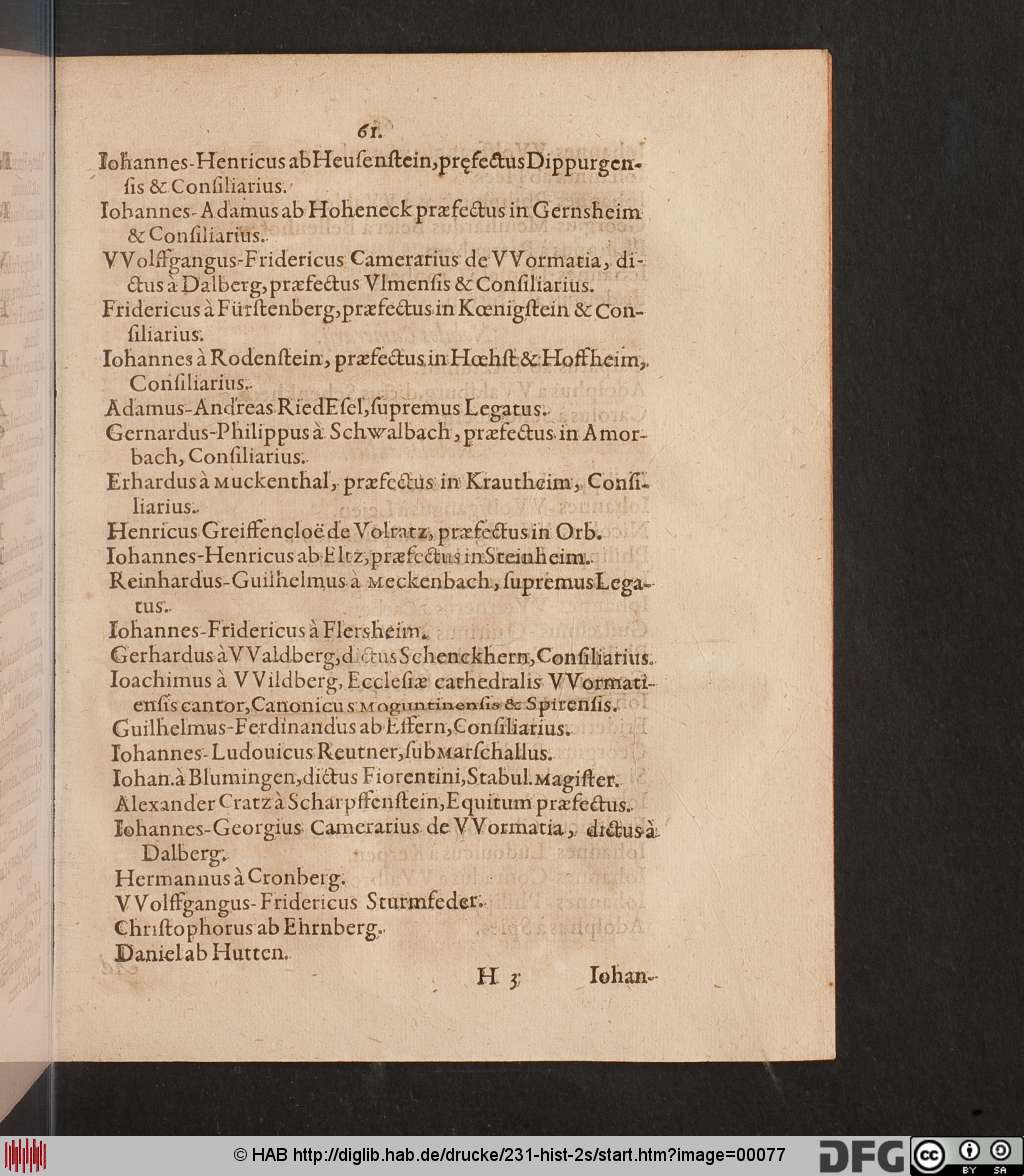 61.
Iohannes-Henricus ab Heuſenſtein, pręfectus Dippurgen-
ſis & Conſiliarius.
Iohannes-Adamus ab Hoheneck præfectus in Gernsheim
& Conſiliarius.
VVolffgangus-Fridericus Camerarius de VVormatia, di-
ctus à Dalberg, præfectus Vlmenſis & Conſiliarius.
Fridericus à Fürſtenberg, præfectus in Kœnigſtein & Con-
ſiliarius.
Iohannes à Rodenſtein, præfectus in Hœhſt & Hoffheim,
Conſiliarius.
Adamus-Andreas RiedEſel, ſupremus Legatus.
Gernardus-Philippus à Schwalbach, præfectus in Amor-
bach, Conſiliarius.
Erhardus à Muckenthal, præfectus in Krautheim, Conſi-
liarius.
Henricus Greiffencloë de Volratz, præfectus in Orb.
Iohannes-Henricus ab Eltz, præfectus in Steinheim.
Reinhardus-Guilhelmus à Meckenbach, ſupremus Lega-
tus.
Iohannes-Fridericus à Flersheim.
Gerhardus à VValdberg, dictus Schenckhern, Conſiliarius.
Ioachimus à VVildberg, Eccleſiæ cathedralis VVormati-
enſis cantor, Canonicus Moguntinenſis & Spirenſis.
Guilhelmus-Ferdinandus ab Effern, Conſiliarius.
Iohannes-Ludouicus Reutner, ſubMarſchallus.
Iohan. à Blumingen, dictus Fiorentini, Stabul. Magiſter.
Alexander Cratz à Scharpffenſtein, Equitum præfectus.
Iohannes-Georgius Camerarius de VVormatia, dictus à
Dalberg.
Hermannus à Cronberg.
VVolffgangus-Fridericus Sturmfeder.
Chriſtophorus ab Ehrnberg.
Daniel ab Hutten.
H 3 Iohan-
© HAB http://diglib.hab.de/drucke/231-hist-2s/start.htm?image=00077
DFG
cc
BY SA